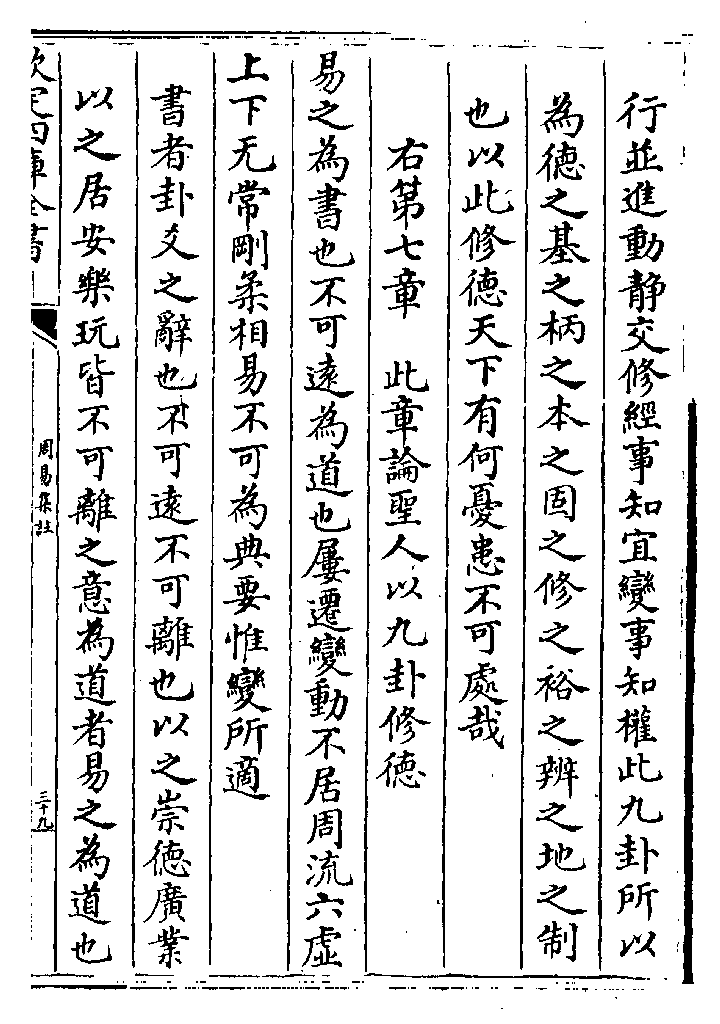 行並進動静交修經事知宜變事知權此九卦所以
為德之基之柄之本之固之修之裕之辨之地之制
也以此修德天下有何憂患不可處哉
右第七章　此章論聖人以九卦修德
易之為書也不可遠為道也屢遷變動不居周流六虛
上下无常剛柔相易不可為典要惟變所適
書者卦爻之辭也不可遠不可離也以之崇德廣業
以之居安樂玩皆不可離之意為道者易之為道也
欽定四庫全書
周易集註
三十九